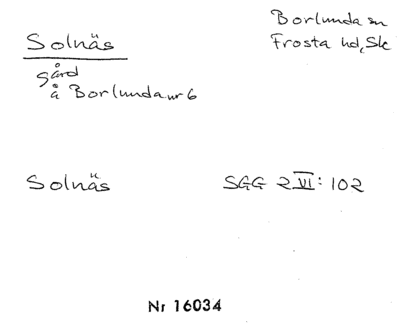 Solnäs
Borlunda sn
Frosta hd, Sk
gård
å Borlunda nr 6
Solnäs
SGG 2 VI: 102
Nr 16034